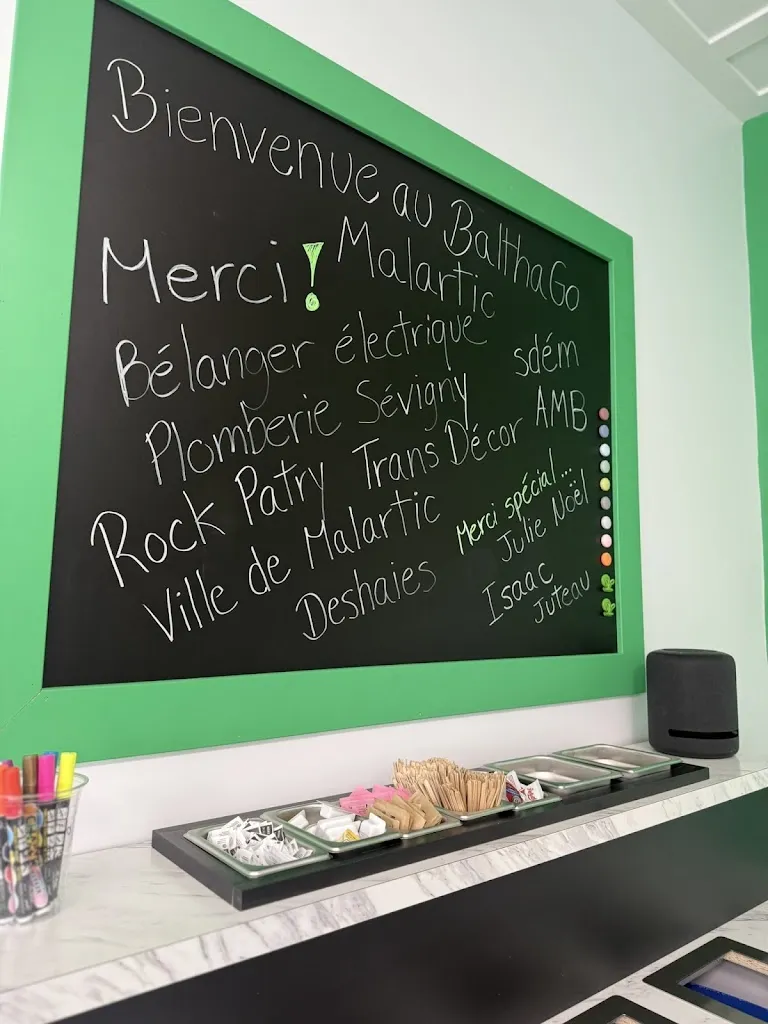 Bienvenue au BalthaGo
Malartic
Merci!
Bélanger électrique
sdém
Plomberie Sévigny
AMB
Rock Patry Trans Décor
Ville de Malartic
Deshaies
Merci spécial...
Julie Noël
Isaac
Juteau